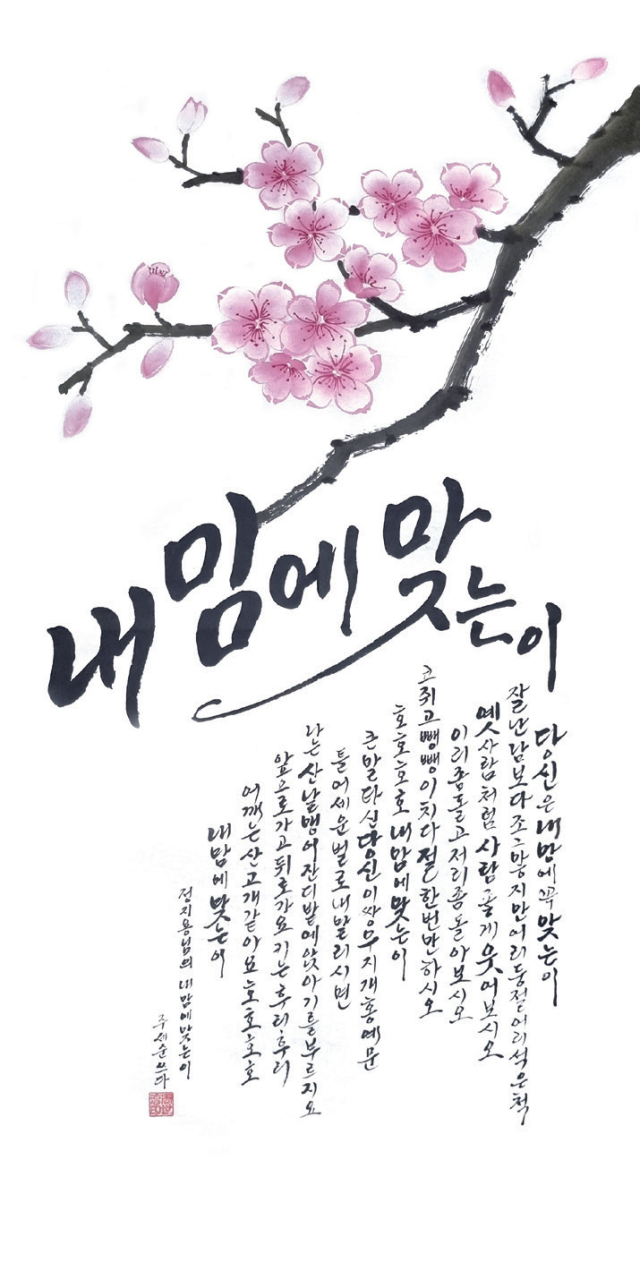 내 맘에 맞는이
당신은 내맘에 꼭 맞는이
잘난남보다 조그맣지만 어리둥절 어리석은척
옛사람처럼 사람좋게 웃어보시오
이리좀돌고 저리좀돌아보시오
코쥐고 뺑뺑이치다 절한번만하시오
호호호호 내맘에맞는이
큰말타신 당신이 쌍무지개홍예문
틀어세운벌로 내달리시면
나는 산날맹이 잔디밭에앉아 기를부르지요
앞으로가고 뒤로가요 키는후리후리
어깨는 산고개같아요 호호호호
내맘에 맞는이
정지용님의 내맘에맞는이
주세순 쓰다